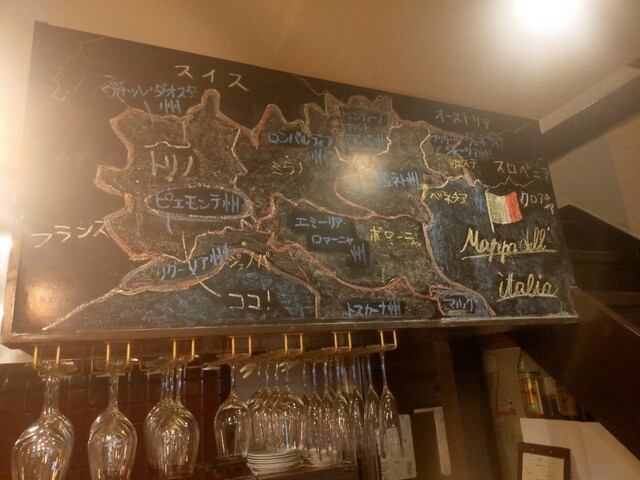 スイス
ヴァッレ・ダオスタ
州
オーストリア
ロンバルディア
州
トリノ
ミラノ
スロベニア
ピエモンテ州
ベネチア
クロアチア
フランス
エミーリア・
ロマーニャ
州
ボローニャ
Mappa dell'
italia
リグーリア州
ジェノバ
ココ!
トスカーナ州
マルケ